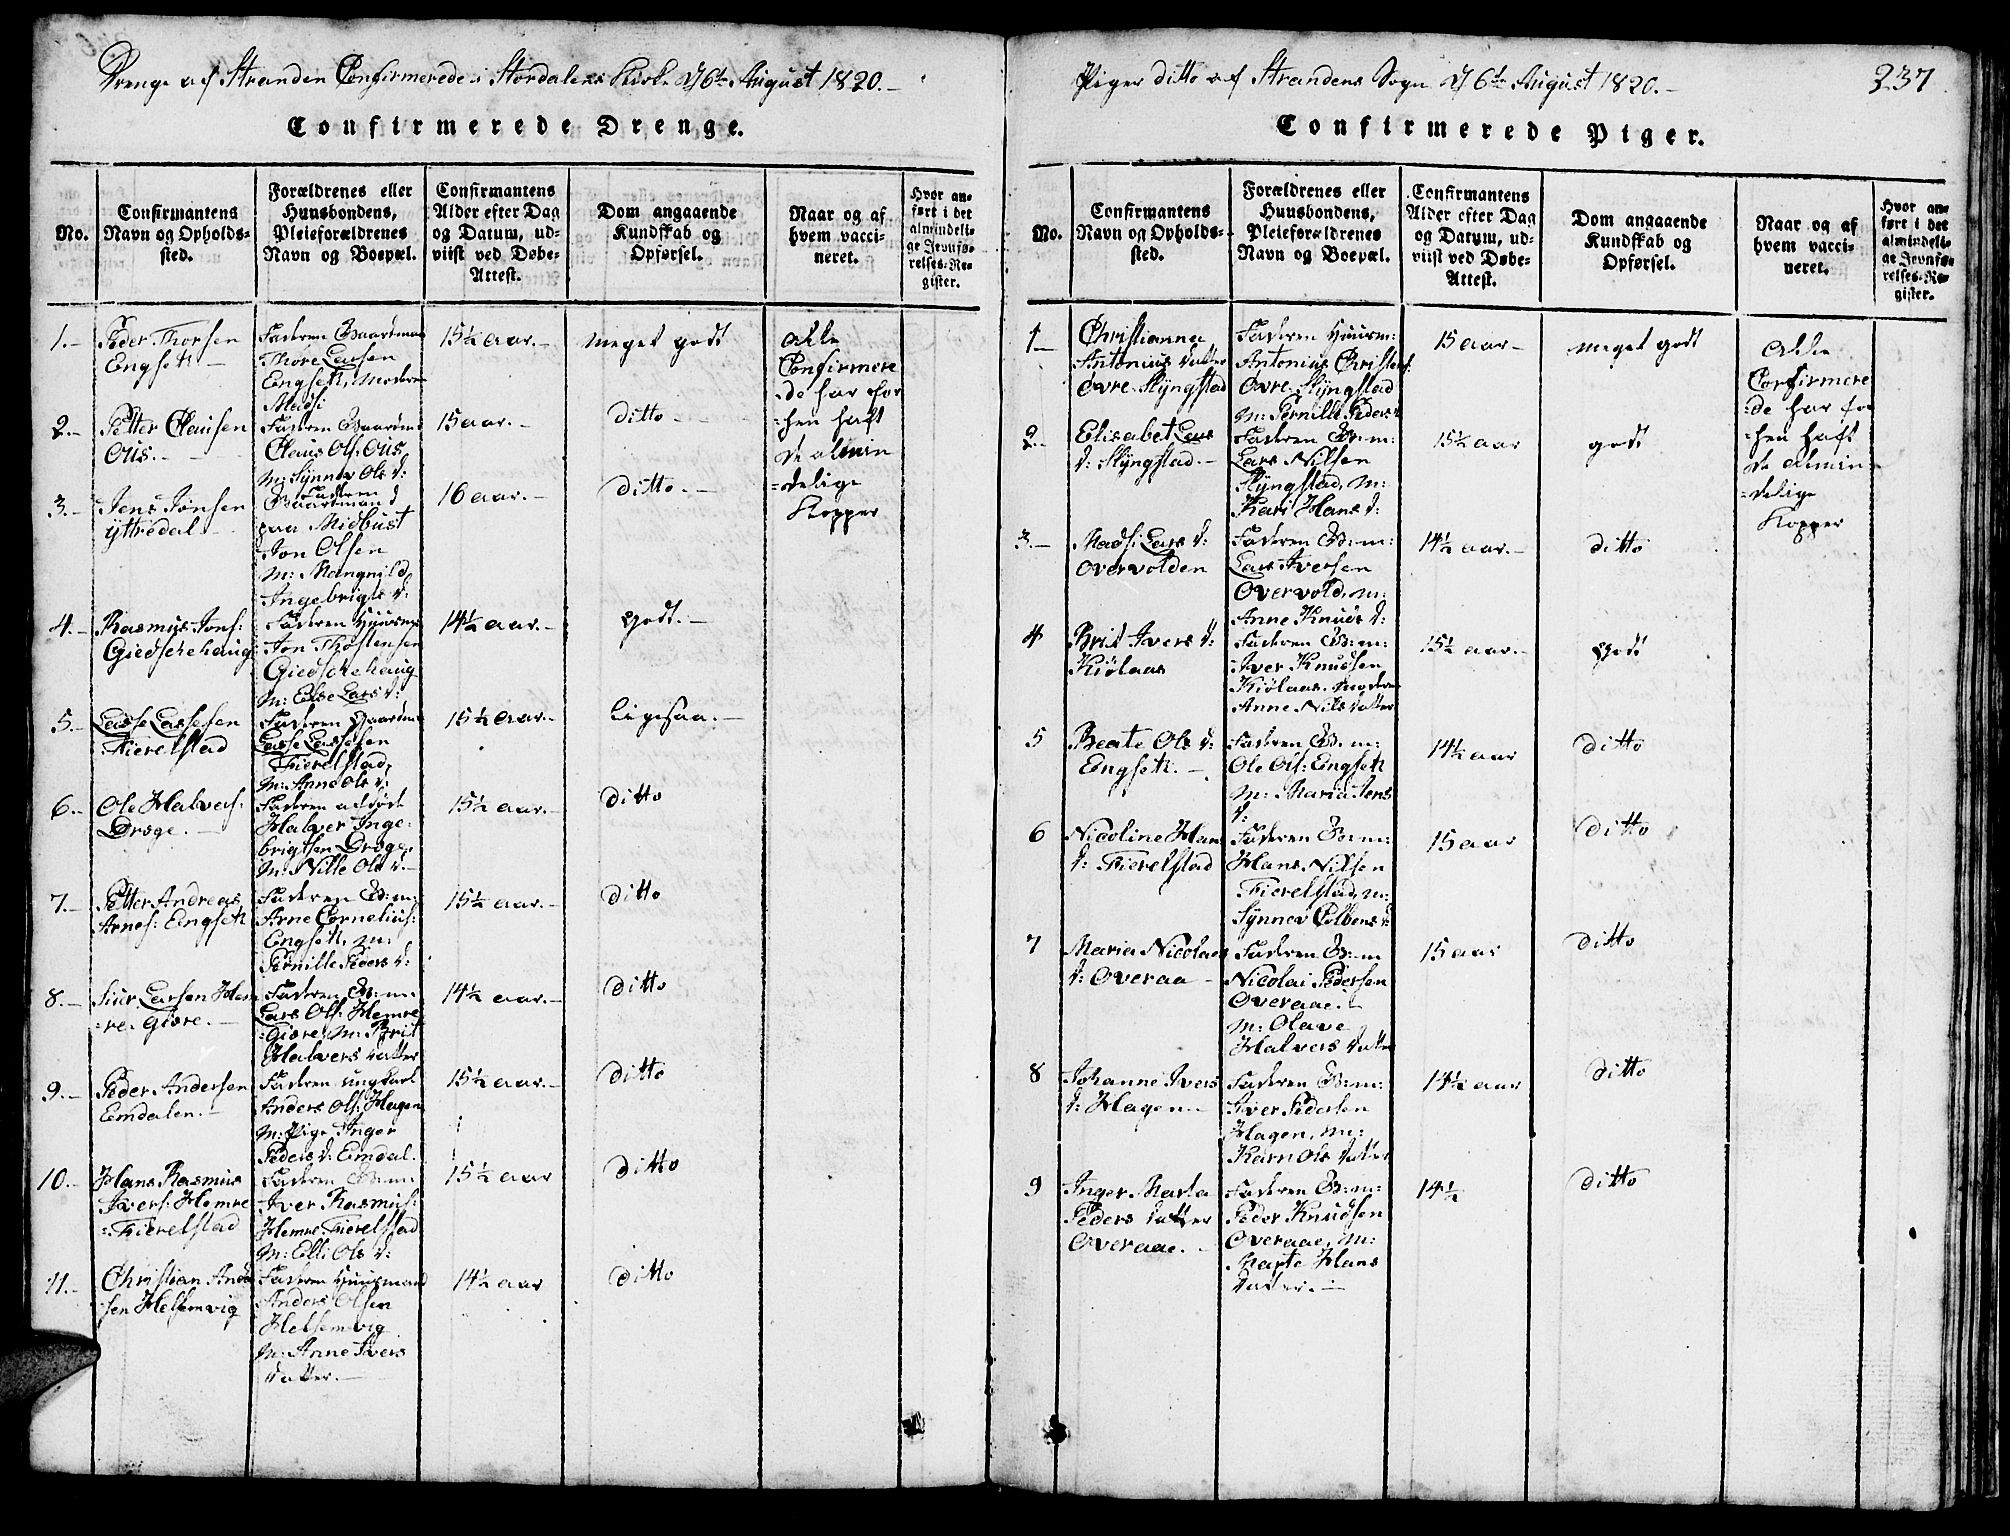 Drenge af Stranden Confirmerede i Stordalens Kirke d 6te August 1820.-
Confirmerede Drenge.
No.
Confirmantens
Navn og Opholds-
sted.
Forældrenes eller
Huusbondens,
Pleieforældrenes
Navn og Boepæl.
Confirmantens
Alder efter Dag
og Datum, ud-
viist ved Døbe-
Attest.
Dom angaaende
Kundskab og
Opførsel.
Naar og af
hvem vacci-
neret.
Hvor an-
ført i det
almindeli-
ge Jevnfø-
relses-Re-
gister.
1.-
Peder Thorsen
Engseth -
Faderen Gaardman
Thore Larsen
Engseth, Moderen
Madsi
15½ aar.-
meget godt
Alle
Confirmere
-de har for
-hen haft
de almin
-delige
Kopper
2.-
Petter Clausen
Ous. -
Faderen Gaardmd
Claus Ols: Ous
M: Synnev Ols d:
15 aar. -
ditto -
3.-
Jens Jonsen
yttredal -
Faderen
Gaardmand
paa Midbust
Jon Olsen
M: Mangnild
Ingebrigts d:
16 aar. -
ditto. -
4.-
Rasmus Jons:
Giedschehaug
Faderen Huusmd
Jon Thostensen
Giedschehaug
M: Else Lars d:
14½ aar.-
godt. -
5.-
Lasse Lassesen
Fierelstad
Faderen Gaardmd
Lasse Lassesen
Fierelstad,
M: Anne Ols d:
15½ aar.-
ligesaa. -
6.-
Ole Halvers:
Drøge. -
Faderen afdøde
Halver Inge-
brigtsen Drøge,
M: Nille Ols d. -
15½ aar. -
ditto
7.-
Petter Andreas
Arnes: Engseth
Faderen G: m:
Arne Cornelius:
Engseth, m:
Pernille Peders d:
15½ aar. -
ditto
8.-
Siur Larsen Hem
-re. Giøre. -
Faderen G: m:
Lars Ols: Hemre
-Giøre, M: Brit
Halvers datter
14½ aar. -
ditto
9.-
Peder Andersen
Emdalen. -
Faderen ungkarl
Anders Ols: Hagen
M: Pige Inger
Peders d: Emdal.
15½ aar. -
ditto
10.-
Hans Rasmus
Ivers: Hemre
-Fierelstad
Faderen G: m:
Iver Rasmus:
Hemre-Fierelstad
M: Elli Ols d:
15½ aar
ditto
11.-
Christian Ander
sen Helsemvig
Faderen Huusmand
Anders Olsen
Helsemvig
M: Anne Ivers
datter. -
14½ aar
ditto
Piger ditto af Strandens Sogn d 6te August 1820.-
237
Confirmerede Piger.
No.
Confirmantens
Navn og Opholds-
sted.
Forældrenes eller
Huusbondens,
Pleieforældrenes
Navn og Boepæl.
Confirmantens
Alder efter Dag
og Datum, ud-
viist ved Døbe-
Attest.
Dom angaaende
Kundskab og
Opførsel.
Naar og af
hvem vacci-
neret.
Hvor an-
ført i det
almindeli-
ge Jevnfø-
relses-Re-
gister.
1
Christianna
Antonius datter
Øvre Slyngstad
Faderen Huusm:
Antonius Christens:
Øvre Slyngstad
M: Pernille Peders d
15 aar -
meget godt
Alle
Confirmere
-de har for
-hen haft
de almin-
-delige
Kopper
2-
Elisabet Lars
d: Slyngstad. -
Faderen G: m:
Lars Nilsen
Slyngstad, M:
Kari Hans d:
15½ aar
godt
3.-
Madsi Lars d:
Overvolden
Faderen G: m:
Lars Iversen
Overvold, m:
Anne Knuds d:
14½ aar. -
ditto
4
Brit Ivers d:
Kiølaas
Faderen G: m:
Iver Knudsen
Kiølaas. moderen
Anne Nils datter
15½ aar. -
godt
5
Beate Ols d:
Engseth. -
Faderen G: m:
Ole Ols: Engseth
M: Maria Jens
d:
14½ aar
ditto
6
Nicoline Hans
d: Fierelstad
Faderen G: m:
Hans Nilsen
Fierelstad, m:
Synnev Colbens d:
15 aar
ditto
7
Maria Nicolaes
d: Overaa -
Faderen G: m
Nicolai Pedersen
Overaae. -
M: Olave
Halvers datter
15 aar
ditto
8
Johanne Ivers
d: Hagen. -
Faderen G: m:
Iver Pedersen
Hagen, m:
Karn Ols datter
14½ aar
ditto
9
Inger Marta
Peders datter
Overaae. -
Faderen G: m:
Peder Knudsen
Overaae, m:
Marte Hans
datter. -
14½
ditto